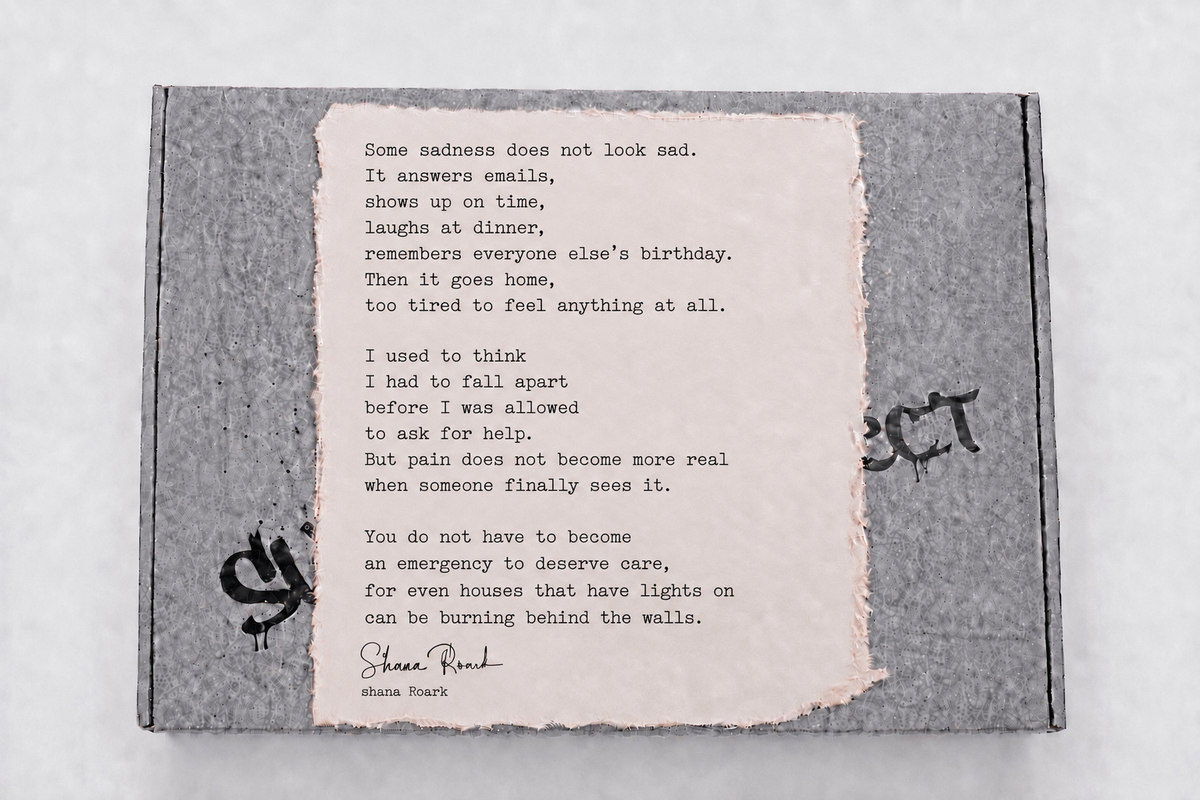 Some sadness does not look sad.
It answers emails,
shows up on time,
laughs at dinner,
remembers everyone else’s birthday.
Then it goes home,
too tired to feel anything at all.
I used to think
I had to fall apart
before I was allowed
to ask for help.
But pain does not become more real
when someone finally sees it.
You do not have to become
an emergency to deserve care,
for even houses that have lights on
can be burning behind the walls.
Shana Roark
shana Roark